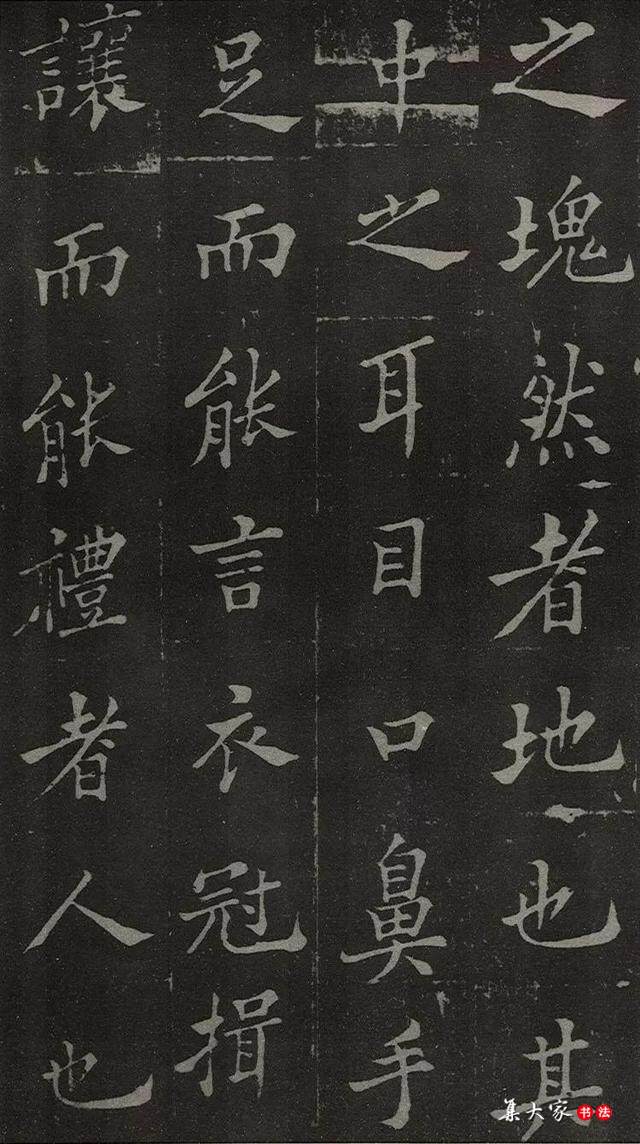 之塊然者地也其
中之耳目口鼻手
足而能言衣冠揖
讓而能禮者人也
集大家书法